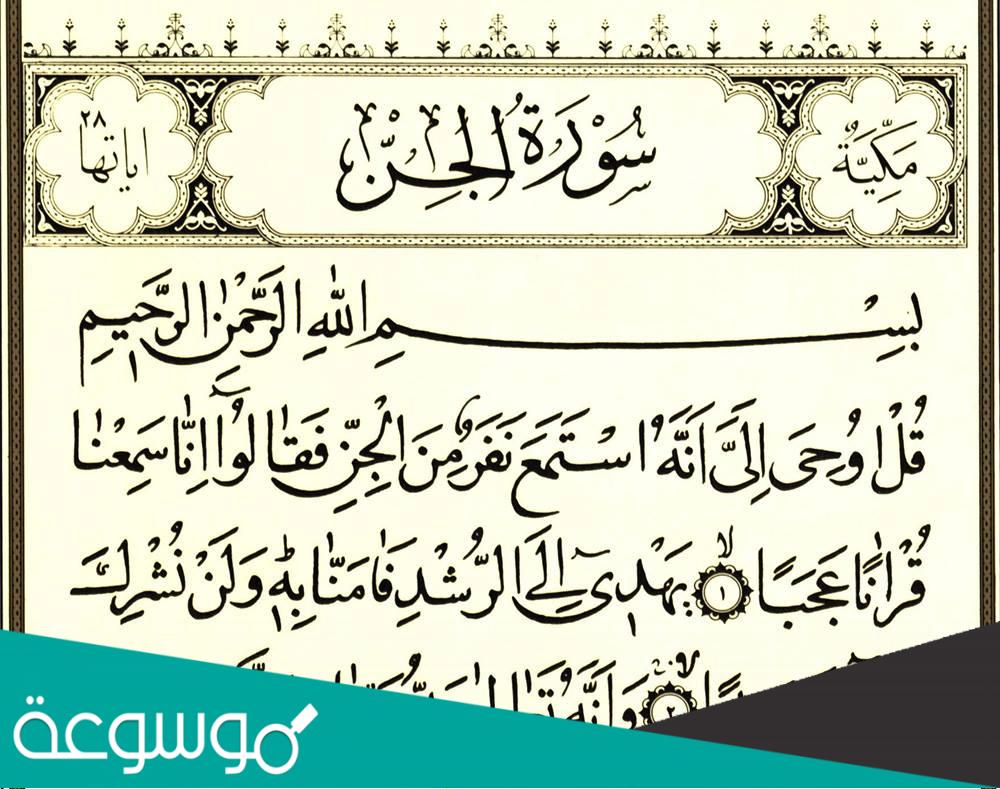 مَكِّيَّةٌ
سُوْرَةُ الْجِنِّ
اٰيَاتُهَا ٢٨
بِسْمِ اللّٰهِ الرَّحْمٰنِ الرَّحِيْمِ
قُلْ اُوْحِىَ اِلَىَّ اَنَّهُ اسْتَمَعَ نَفَرٌ مِّنَ الْجِنِّ فَقَالُوْۤا اِنَّا سَمِعْنَا
قُرْاٰنًا عَجَبًا ۙ ١ يَّهْدِىْۤ اِلَى الرُّشْدِ فَاٰمَنَّا بِهٖ ؕ وَلَنْ نُّشْرِكَ
٢ وَاَنَّهٗ
موسوعة